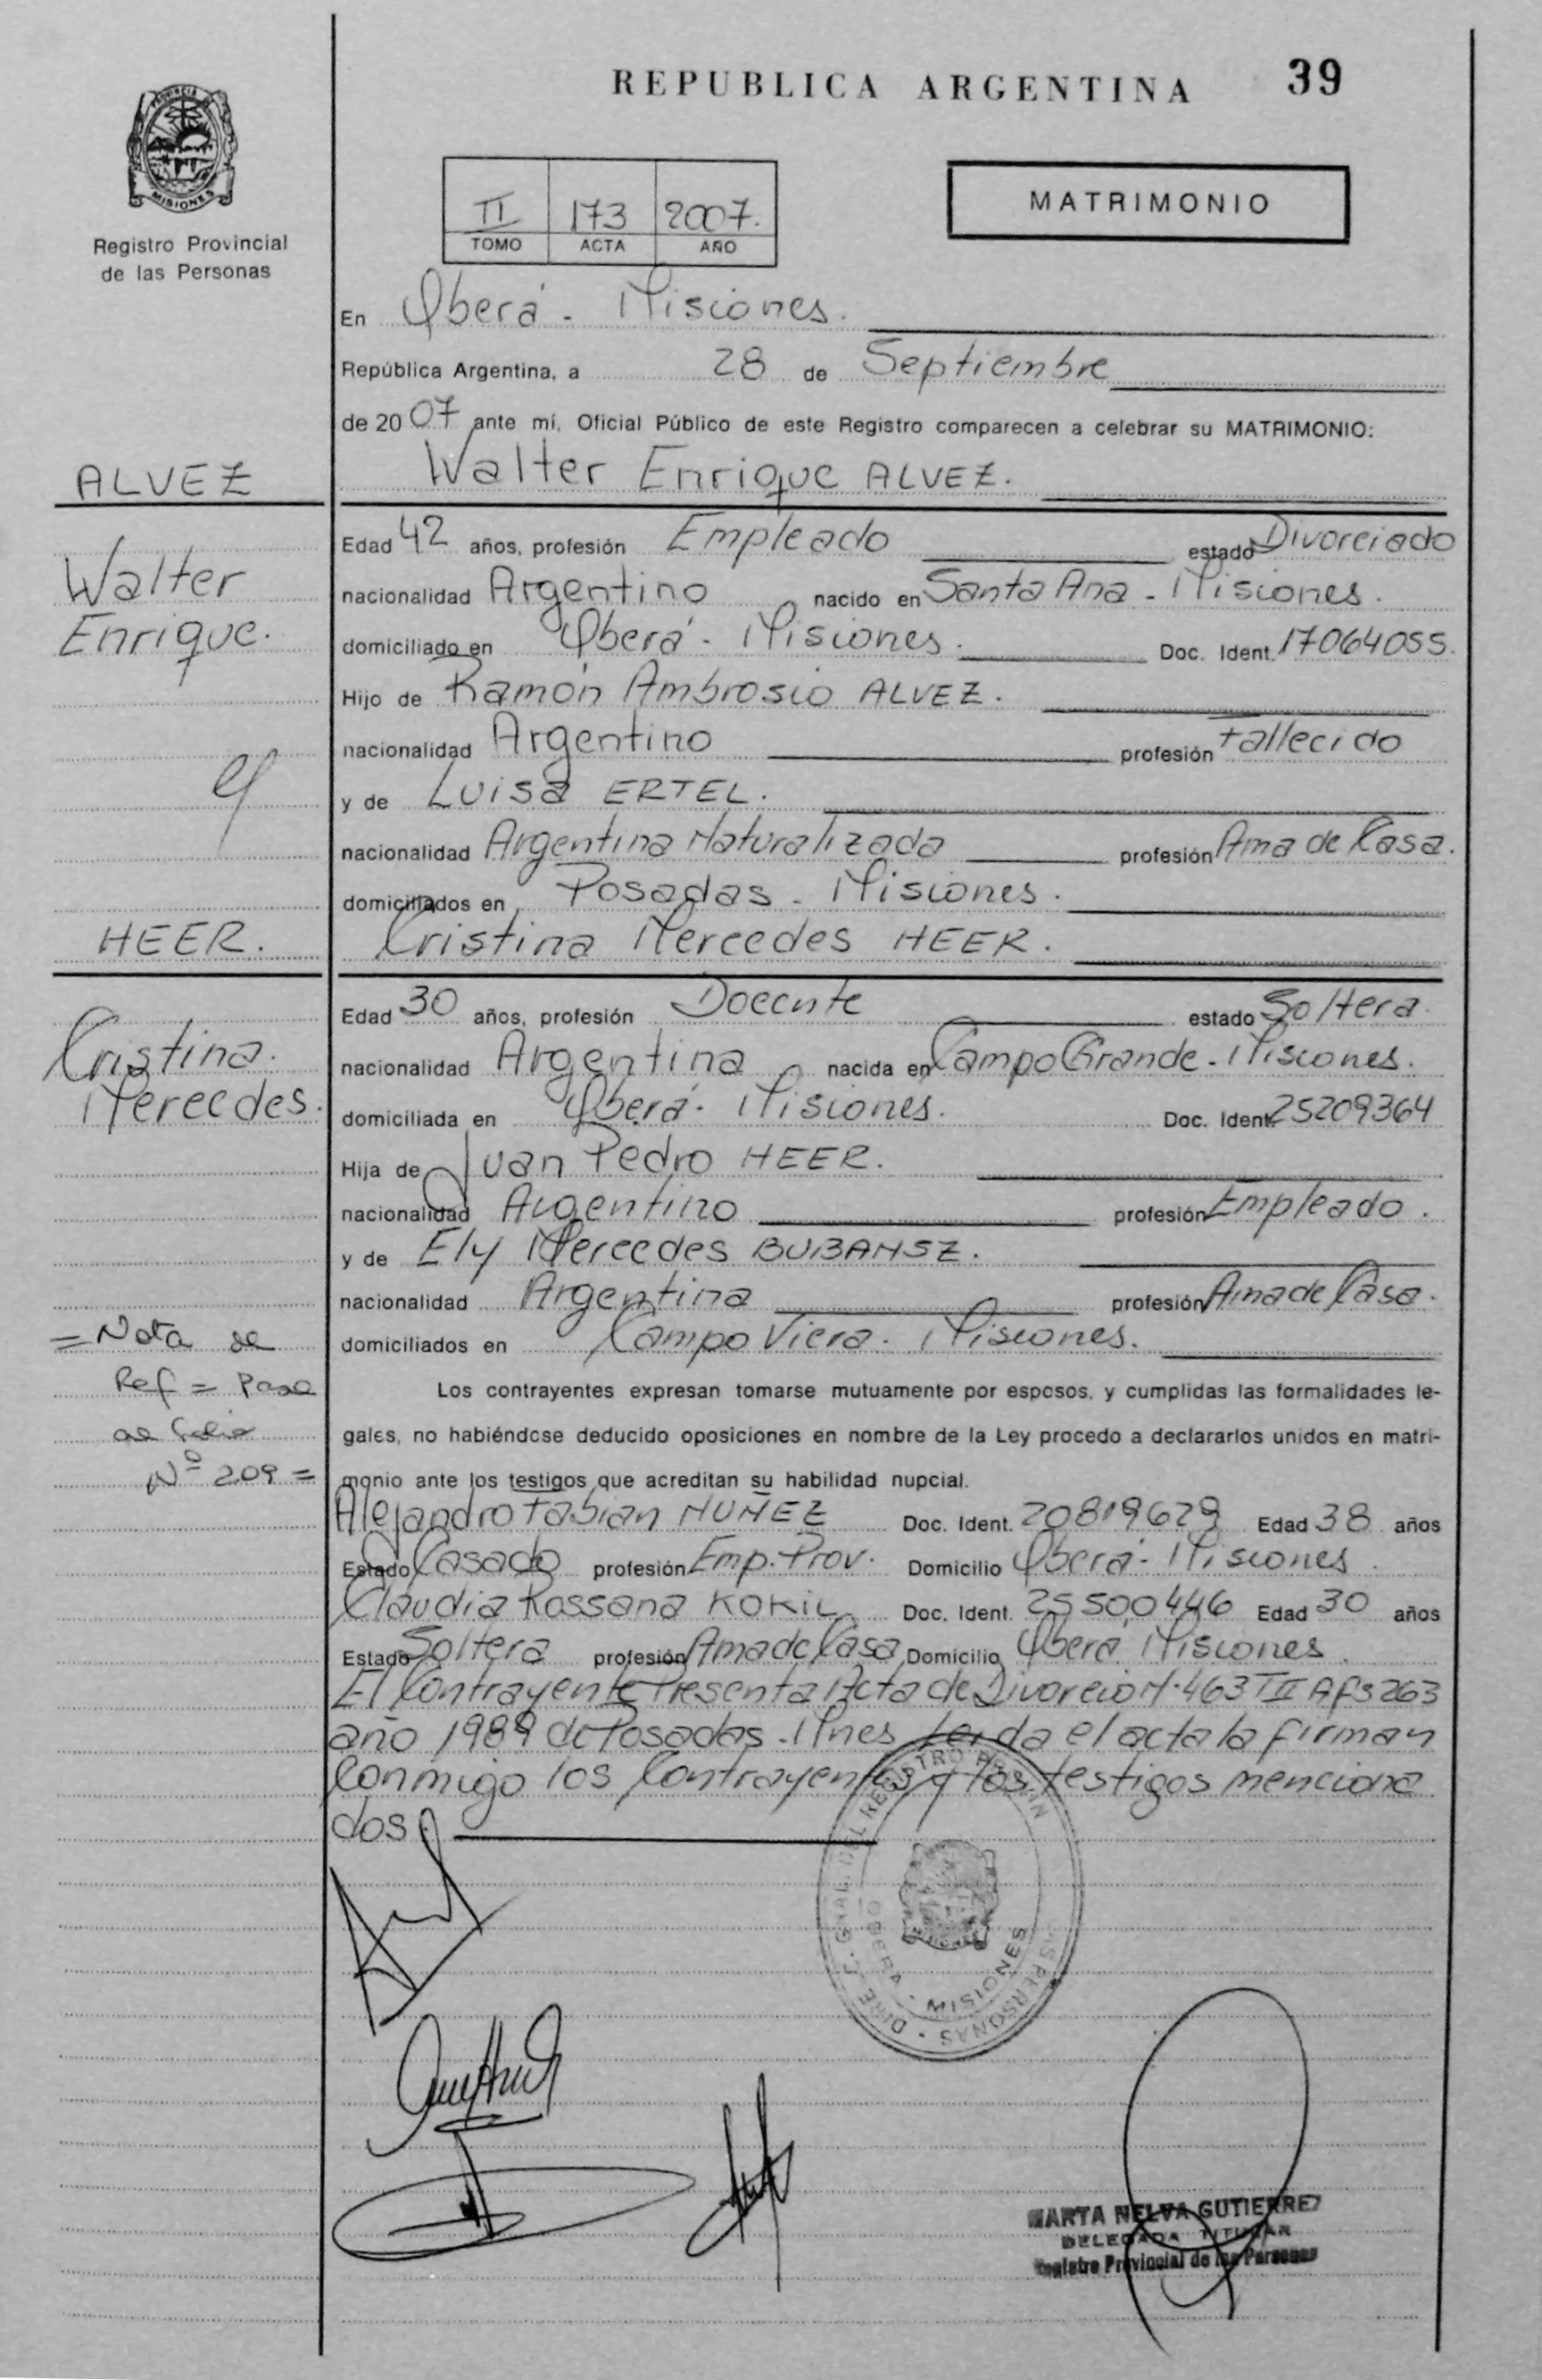 REPUBLICA ARGENTINA 39
PROVINCIA DE
MISIONES
Registro Provincial
de las Personas
II 173 2007.
TOMO ACTA AÑO
MATRIMONIO
En Oberá - Misiones.
República Argentina, a 28 de Septiembre
de 2007 ante mí, Oficial Público de este Registro comparecen a celebrar su MATRIMONIO:
ALVEZ
Walter Enrique ALVEZ.
Walter
Enrique.
y
Edad 42 años, profesión Empleado estado Divorciado
nacionalidad Argentino nacido en Santa Ana - Misiones.
domiciliado en Oberá - Misiones. Doc. Ident. 17064055.
Hijo de Ramón Ambrosio ALVEZ.
nacionalidad Argentino profesión Fallecido
y de Luisa ERTEL.
nacionalidad Argentina Naturalizada profesión Ama de Casa.
domiciliados en Posadas - Misiones.
HEER.
Cristina Mercedes HEER.
Cristina.
Mercedes.
Edad 30 años, profesión Docente estado Soltera.
nacionalidad Argentina nacida en Campo Grande - Misiones.
domiciliada en Oberá - Misiones. Doc. Ident. 25209364
Hija de Juan Pedro HEER.
nacionalidad Argentino profesión Empleado.
y de Ely Mercedes BUBANSZ.
nacionalidad Argentina profesión Ama de Casa.
domiciliados en Campo Viera - Misiones.
= Nota de
Ref = Pasa
al folio
Nº 209 =
Los contrayentes expresan tomarse mutuamente por esposos, y cumplidas las formalidades le-
gales, no habiéndose deducido oposiciones en nombre de la Ley procedo a declararlos unidos en matri-
monio ante los testigos que acreditan su habilidad nupcial.
Alejandro Fabian NUÑEZ Doc. Ident. 20819629 Edad 38 años
Estado Casado profesión Emp. Prov. Domicilio Oberá - Misiones.
Claudia Rossana KOKIL Doc. Ident. 25500446 Edad 30 años
Estado Soltera profesión Ama de Casa Domicilio Oberá Misiones.
El Contrayente Presenta Acta de Divorcio N. 463 TII Afs 263
año 1989 de Posadas - Mnes Leida el acta la firman
Conmigo los Contrayentes y los testigos menciona
dos.
OBERA - MISIONES
MARTA NELVA GUTIERREZ
DELEGADA TITULAR
Registro Provincial de las Personas